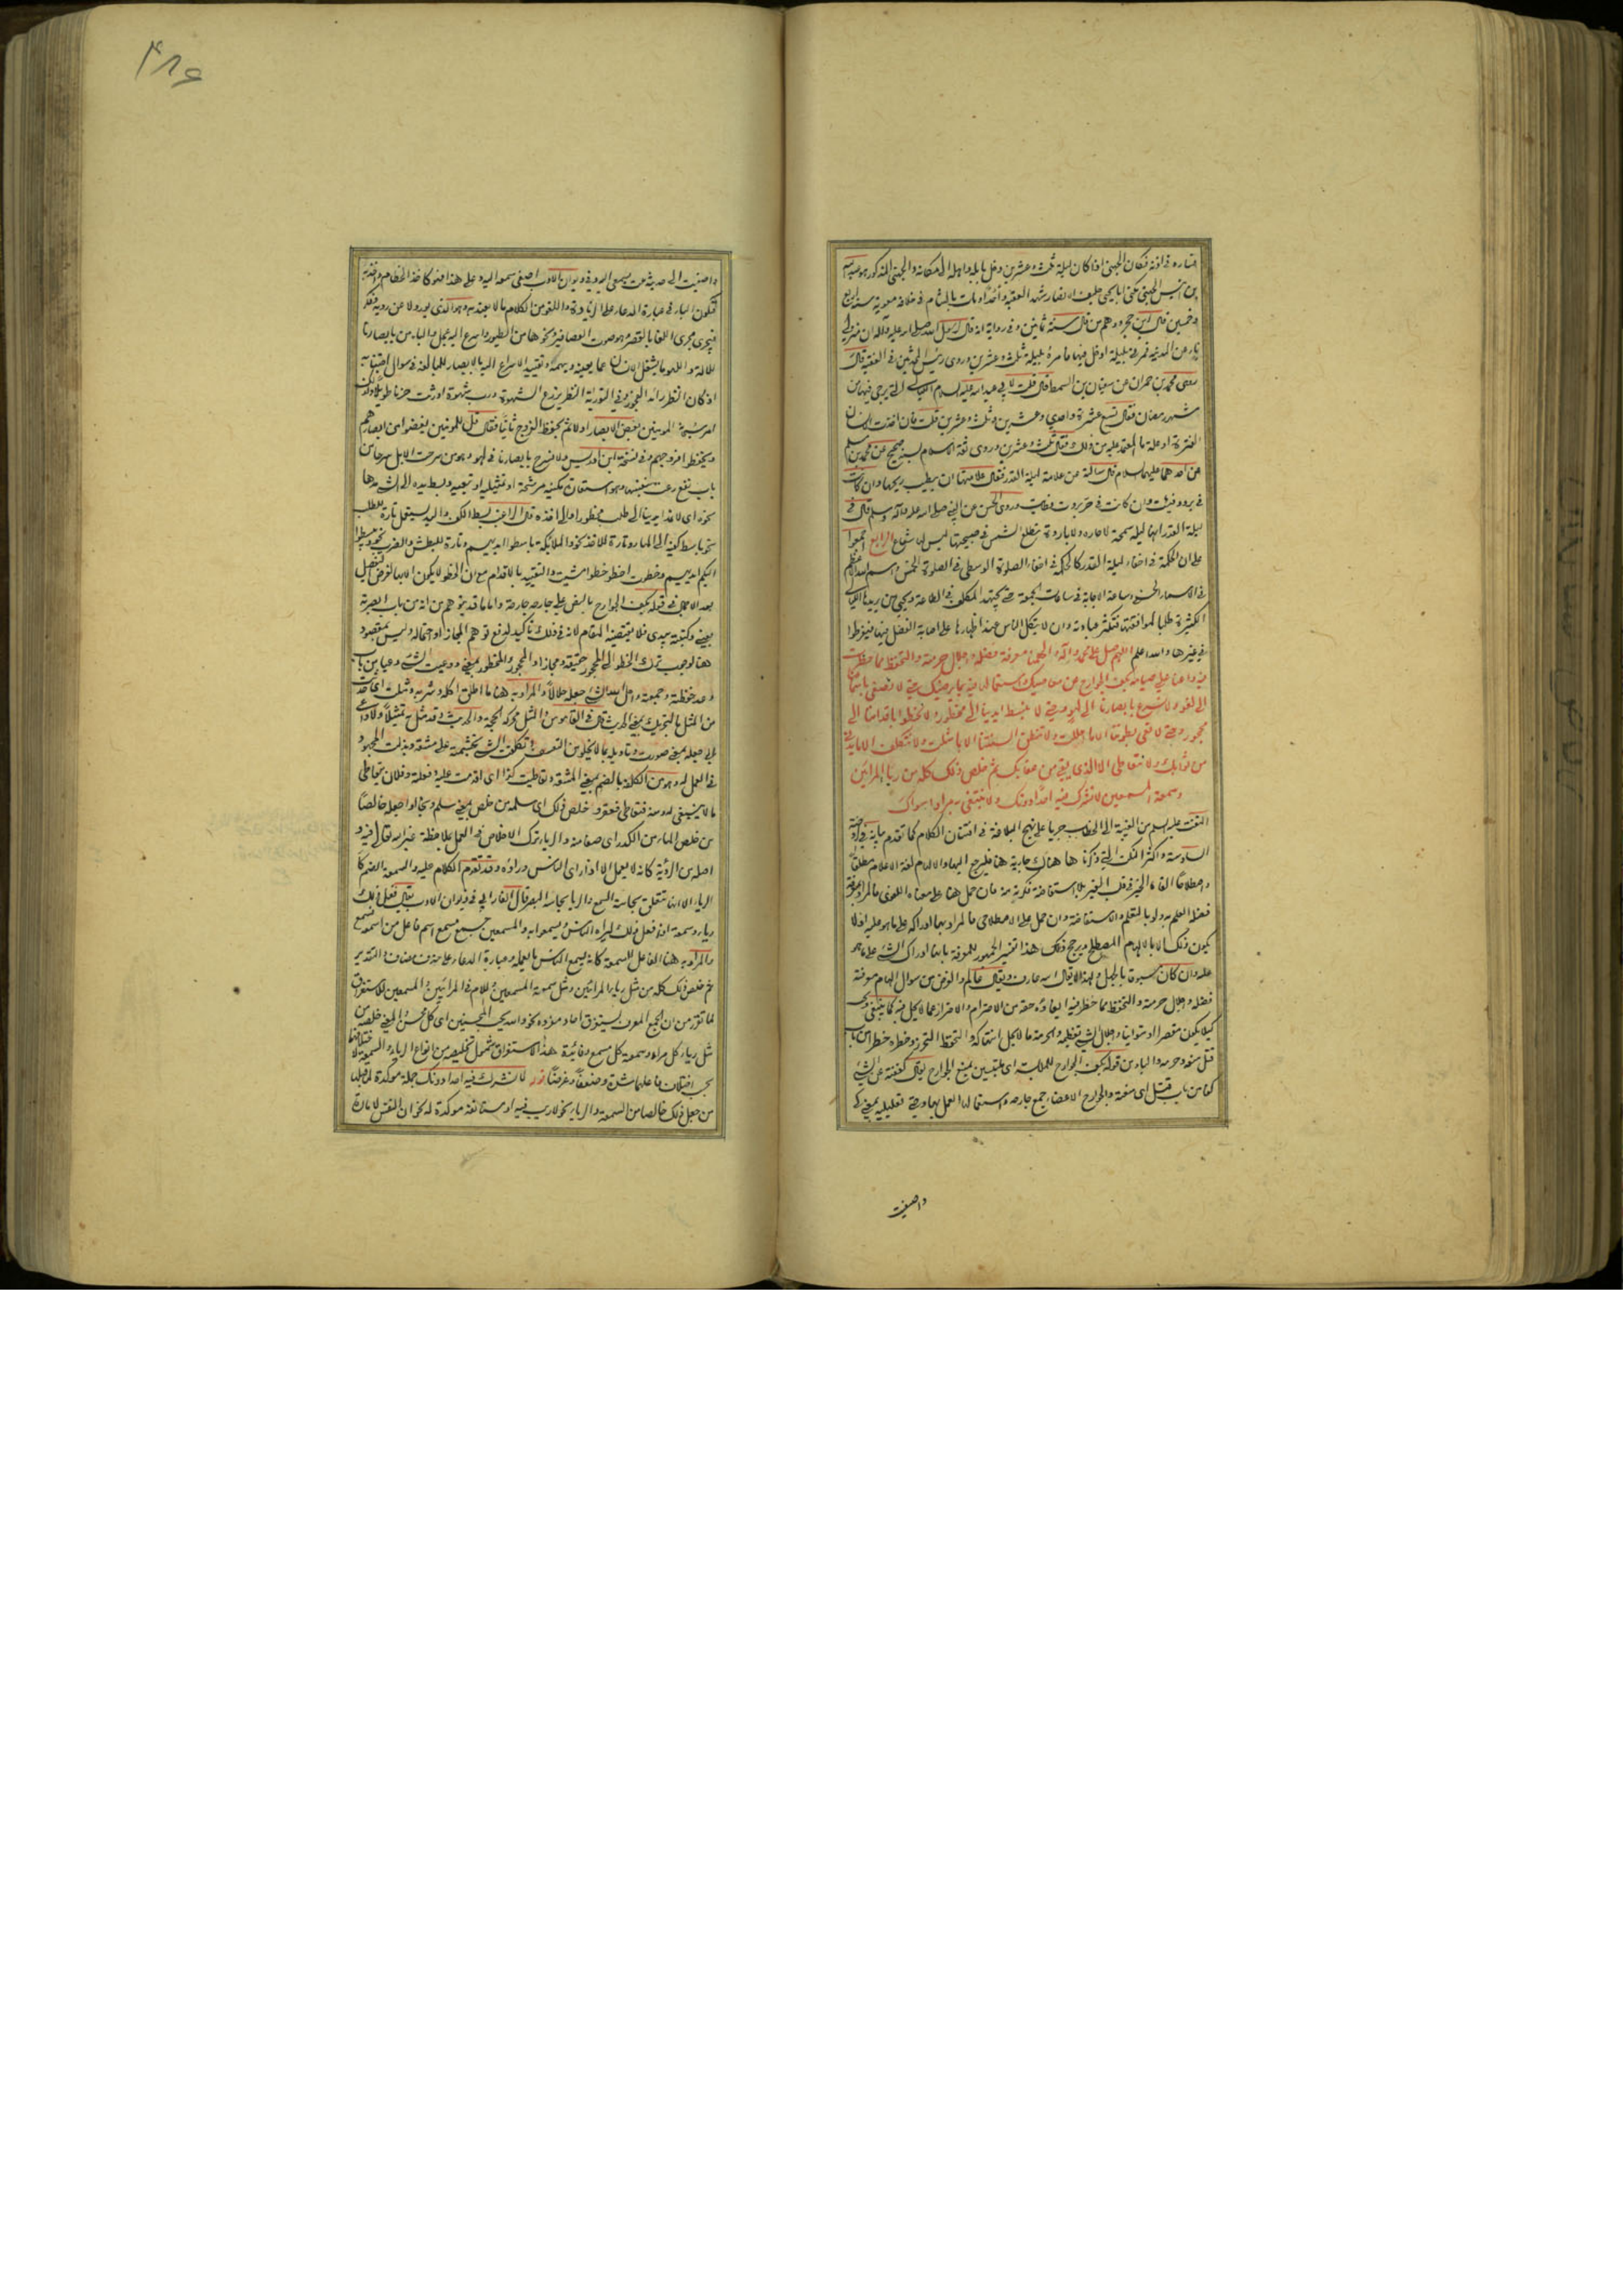 فساره في اذنه فكان الجهني اذا كان ليلة ثلث وعشرين دخل بابله واهله الى مكانه والجهني المذكور هو عبد الله
بن انيس الجهني يكنى ابا يحيى حليف الانصار شهد العقبة واحدا ومات بالشام في خلافة معوية سنة اربع
وخمسين قال ابن حجر ووهم من قال سنة ثمانين وفي رواية انه قال لرسول الله صلى الله عليه وآله ان منزلي
ناء عن المدينة فمرني بليلة ادخل فيها فامره بليلة ثلث وعشرين وروى رئيس المحدثين في الفقيه قال
روى محمد بن حمران عن سفيان بن السمط قال قلت لابي عبد الله عليه السلام الليالي التي يرجى فيها من
شهر رمضان فقال تسع عشرة واحدى وعشرين وثلث وعشرين قلت فان اخذت انسان
الفترة او علة ما المعتمد عليه من ذلك فقال ثلث وعشرين وروى ثقة الاسلام بسند صحيح عن محمد بن مسلم
عن احدهما عليهما السلام قال سالته عن علامة ليلة القدر فقال علامتها ان يطيب ريحها وان كانت
في برد دفئت وان كانت في حر بردت وطابت وروى الحسن عن النبي صلى الله عليه وآله وسلم قال في
ليلة القدر انها ليلة سمحة لا حارة ولا باردة تطلع الشمس في صبيحتها ليس لها شعاع الرابع اجمعوا
على ان الحكمة في اخفاء ليلة القدر كالحكمة في اخفاء الصلوة الوسطى في الصلوة الخمس واسم الله الاعظم
في الاسماء الحسنى وساعة الاجابة في ساعات الجمعة حتى يجتهد المكلف في الطاعة ويحيى من يريدها الليالي
الكثيرة طلبا لموافقتها فتكثر عبادته وان لا يتكل الناس عند اظهارها على اصابة الفضل فيها فيفرطوا
في غيرها والله اعلم اللهم صل على محمد وآله والهمنا معرفة فضله واجلال حرمته والتحفظ مما حظرت
فيه واعنا على صيامه بكف الجوارح عن معاصيك واستعمالها فيه بما يرضيك حتى لا نصغي باسماعنا
الى لغو ولا نسرع بابصارنا الى لهو وحتى لا نبسط ايدينا الى محظور ولا نخطوا باقدامنا الى
محجور وحتى لا تعي بطوننا الا ما احللت ولا تنطق السنتنا الا بما مثلت ولا نتكلف الا ما يدني
من ثوابك ولا نتعاطى الا الذي يقي من عقابك ثم خلص ذلك كله من ريا المرائين
وسمعة المسمعين لا نشرك فيه احدا دونك ولا نبتغي به مرادا سواك
التفت عليه السلام من الغيبة الى الخطاب جريا على نهج البلاغة في افتنان الكلام كما تقدم بيانه في الروضة
السادسة واكثر النكت التي ذكرناها هناك جارية هنا فليرجع اليها والالهام لغة الاعلام مطلقا
واصطلاحا القاء الخير في قلب الغير بلا استفاضة فكرية منه فان حمل هنا على معناه اللغوي فالمراد بمعرفة
فضله العلم به ولو بالتعلم والاستفاضة وان حمل على الاصطلاحي فالمراد بها ادراكه على ما هو عليه اذ لا
يكون ذلك الا بالالهام المصطلح ويرجح ذلك هذا تفسير الجمهور للمعرفة بانها ادراك الشئ على ما هو
عليه وان كان مسبوقا بالجهل ولهذا لا يقال الله عارف ويقال عالم والغرض من سوال الهام معرفة
فضله واجلال حرمته والتحفظ مما حظر فيه ايفاؤه حقه من الاحترام والاحتراز عما لا يحل فيه كما ينبغي ويجب
كيلا يكون مقصرا او متوانيا واجلال الشئ تعظيمه والحرمة ما لا يحل انتهاكه والتحفظ التحرز وحظره حظرا من باب
قتل منعه وحرمه والباء من قوله بكف الجوارح للملابسة اى ملتبسين بمنع الجوارح يقال كففته عن الشئ
كفا من باب قتل اى منعته والجوارح الاعضاء جمع جارحة واستعمالها العمل بها وحتى تعليلية بمعنى كي
واصغيت
۴۸۶
واصغيت الى حديثه
فتكون الباء في عبارة الدعاء على الزيادة واللغو من الكلام ما لا يعتد به وهو الذي يورد لا عن روية وفكر
فيجري مجرى اللغا بالقصر وهو صوت العصافير ونحوها من الطيور واسرع اليه عجل والباء من بابصارنا
للآلة واللهو ما يشغل الانسان عما يعنيه ويهمه وتقييد الاسراع اليه بالابصار للمبالغة في سوال اجتنابه
اذ كان النظر رائد الفجور وفي التورية النظر يزرع الشهوة ورب شهوة اورثت حزنا طويلا ولذلك
امر سبحانه المومنين بغض الابصار اولا ثم بحفظ الفروج ثانيا فقال قل للمومنين يغضوا من ابصارهم
ويحفظوا فروجهم وفي نسخة ابن ادريس ولا نسرح بابصارنا في لهو وهو من سرحت الابل سرحا من
باب نفع رعت بنفسها وهو استعارة مكنية مرشحة او تمثيلية او تبعية وبسط يده الى الشئ مدها
نحوه اى لا نمد ايدينا الى طلب محظور او الى اخذه قال الراغب بسط الكف واليد يستعمل تارة للطلب
نحو باسط كفيه الى الماء وتارة للاخذ نحو والملائكة باسطوا ايديهم وتارة للبطش والضرب نحو ويبسطوا
اليكم ايديهم وخطوت اخطو خطوا مشيت والتقييد بالاقدام مع ان الخطو لا يكون الا بها لغرض التفصيل
بعد الاجمال في قوله بكف الجوارح بالنص على جارحة جارحة واما ما قد يتوهم من انه من باب ابصرته
بعيني وكتبته بيدي فلا يقتضيه المقام لانه في ذلك تاكيد لدفع توهم المجاز او احتماله وليس بمقصود
هنا لوجوب ترك الخطو الى المحجور حقيقة ومجازا والمحجور والمحظور بمعنى ووعيت الشئ وعيا من باب
وعد حفظته وجمعته واحل الله الشئ جعله حلالا والمراد به هنا ما اطلق اكله وشربه ومثلت اى حدثت
من المثل بالتحريك بمعنى الحديث قال في القاموس والمثل محركة الحجة والحديث وقد مثل به تمثيلا
على جعله بمعنى صورت وتاويله بما لا يخلو من التعسف وتكلفت الشئ تجشمته على مشقة وبذلت المجهود
في العمل له وهو من الكلفة بالضم بمعنى المشقة وتعاطيت كذا اى اقدمت عليه وفعلته وفلان يتعاطى
ما لا ينبغي له ومنه فتعاطى فعقر وخلص ذلك اى سلمه من خلص بمعنى سلم ونجا او اجعله خالصا
من خلص الماء من الكدر اى صفا منه والرياء ترك الاخلاص في العمل بملاحظة غير الله تعالى فيه و
اصله من الرؤية كانه لا يعمل الا اذا راى الناس وراؤه وقد تقدم الكلام عليه والسمعة بالضم كا
الرياء الا انها تتعلق بحاسة السمع والريا بحاسة البصر قال الفارابي في ديوان الادب يقال فعل ذلك
رياء وسمعة اذا فعل ذلك ليراه الناس ويسمعوا به والمسمعين جمع مسمع اسم فاعل من اسمع
والمراد به هنا الفاعل للسمعة كانه يسمع الناس بما يعمله وعبارة الدعاء على حذف مضاف والتقدير
ثم خلص ذلك كله من مثل رياء المرائين ومثل سمعة المسمعين واللام في المرائين والمسمعين للاستغراق
لما تقرر من ان الجمع المعرف يستغرق احاد مفرده نحو والله يحب المحسنين اى كل محسن والمعنى خلصه من
مثل رياء كل مراء وسمعة كل مسمع وفائدة هذا الاستغراق شمول تخليصه من انواع الرياء والسمعة لاختلافهما
بحسب اختلاف فاعلهما شدة وضعفا وغرضا قوله لا نشرك فيه احدا دونك جملة موكدة لما قبلها
من جعل ذلك خالصا من السمعة والرياء نحو لا ريب فيه او مستانفة موكدة له